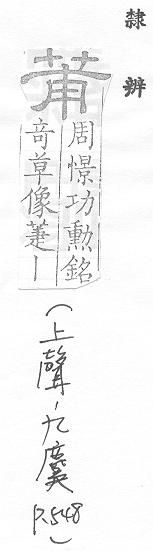 隸辨
莆
周憬功勳銘
奇草像萐丨
(上聲-九麌 P.548)